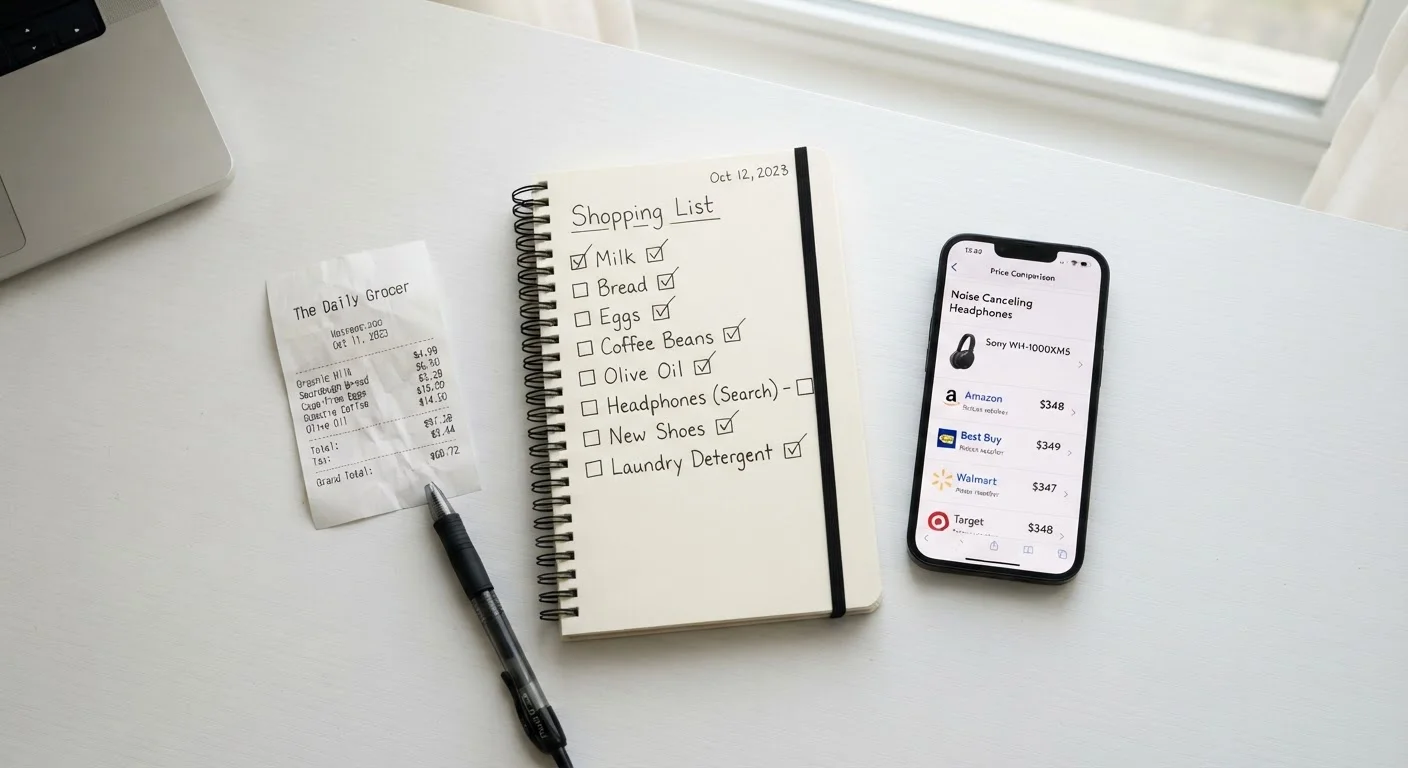 The Daily Grocer
Oct 11, 2023
$4.99
$6.50
$3.29
$15.00
Olive Oil
$14.50
Total:
Grand Total:
$60.72
Oct 12, 2023
Shopping List
☑ Milk ☑
☐ Bread ☑
☐ Eggs ☑
☐ Coffee Beans ☑
☐ Olive Oil ☑
☐ Headphones (Search) - ☐
☐ New Shoes ☑
☐ Laundry Detergent ☑
Price Comparison
Noise Canceling
Headphones
Sony WH-1000XM5
Amazon
$348
Best Buy
$349
Walmart
$347
Target
$348